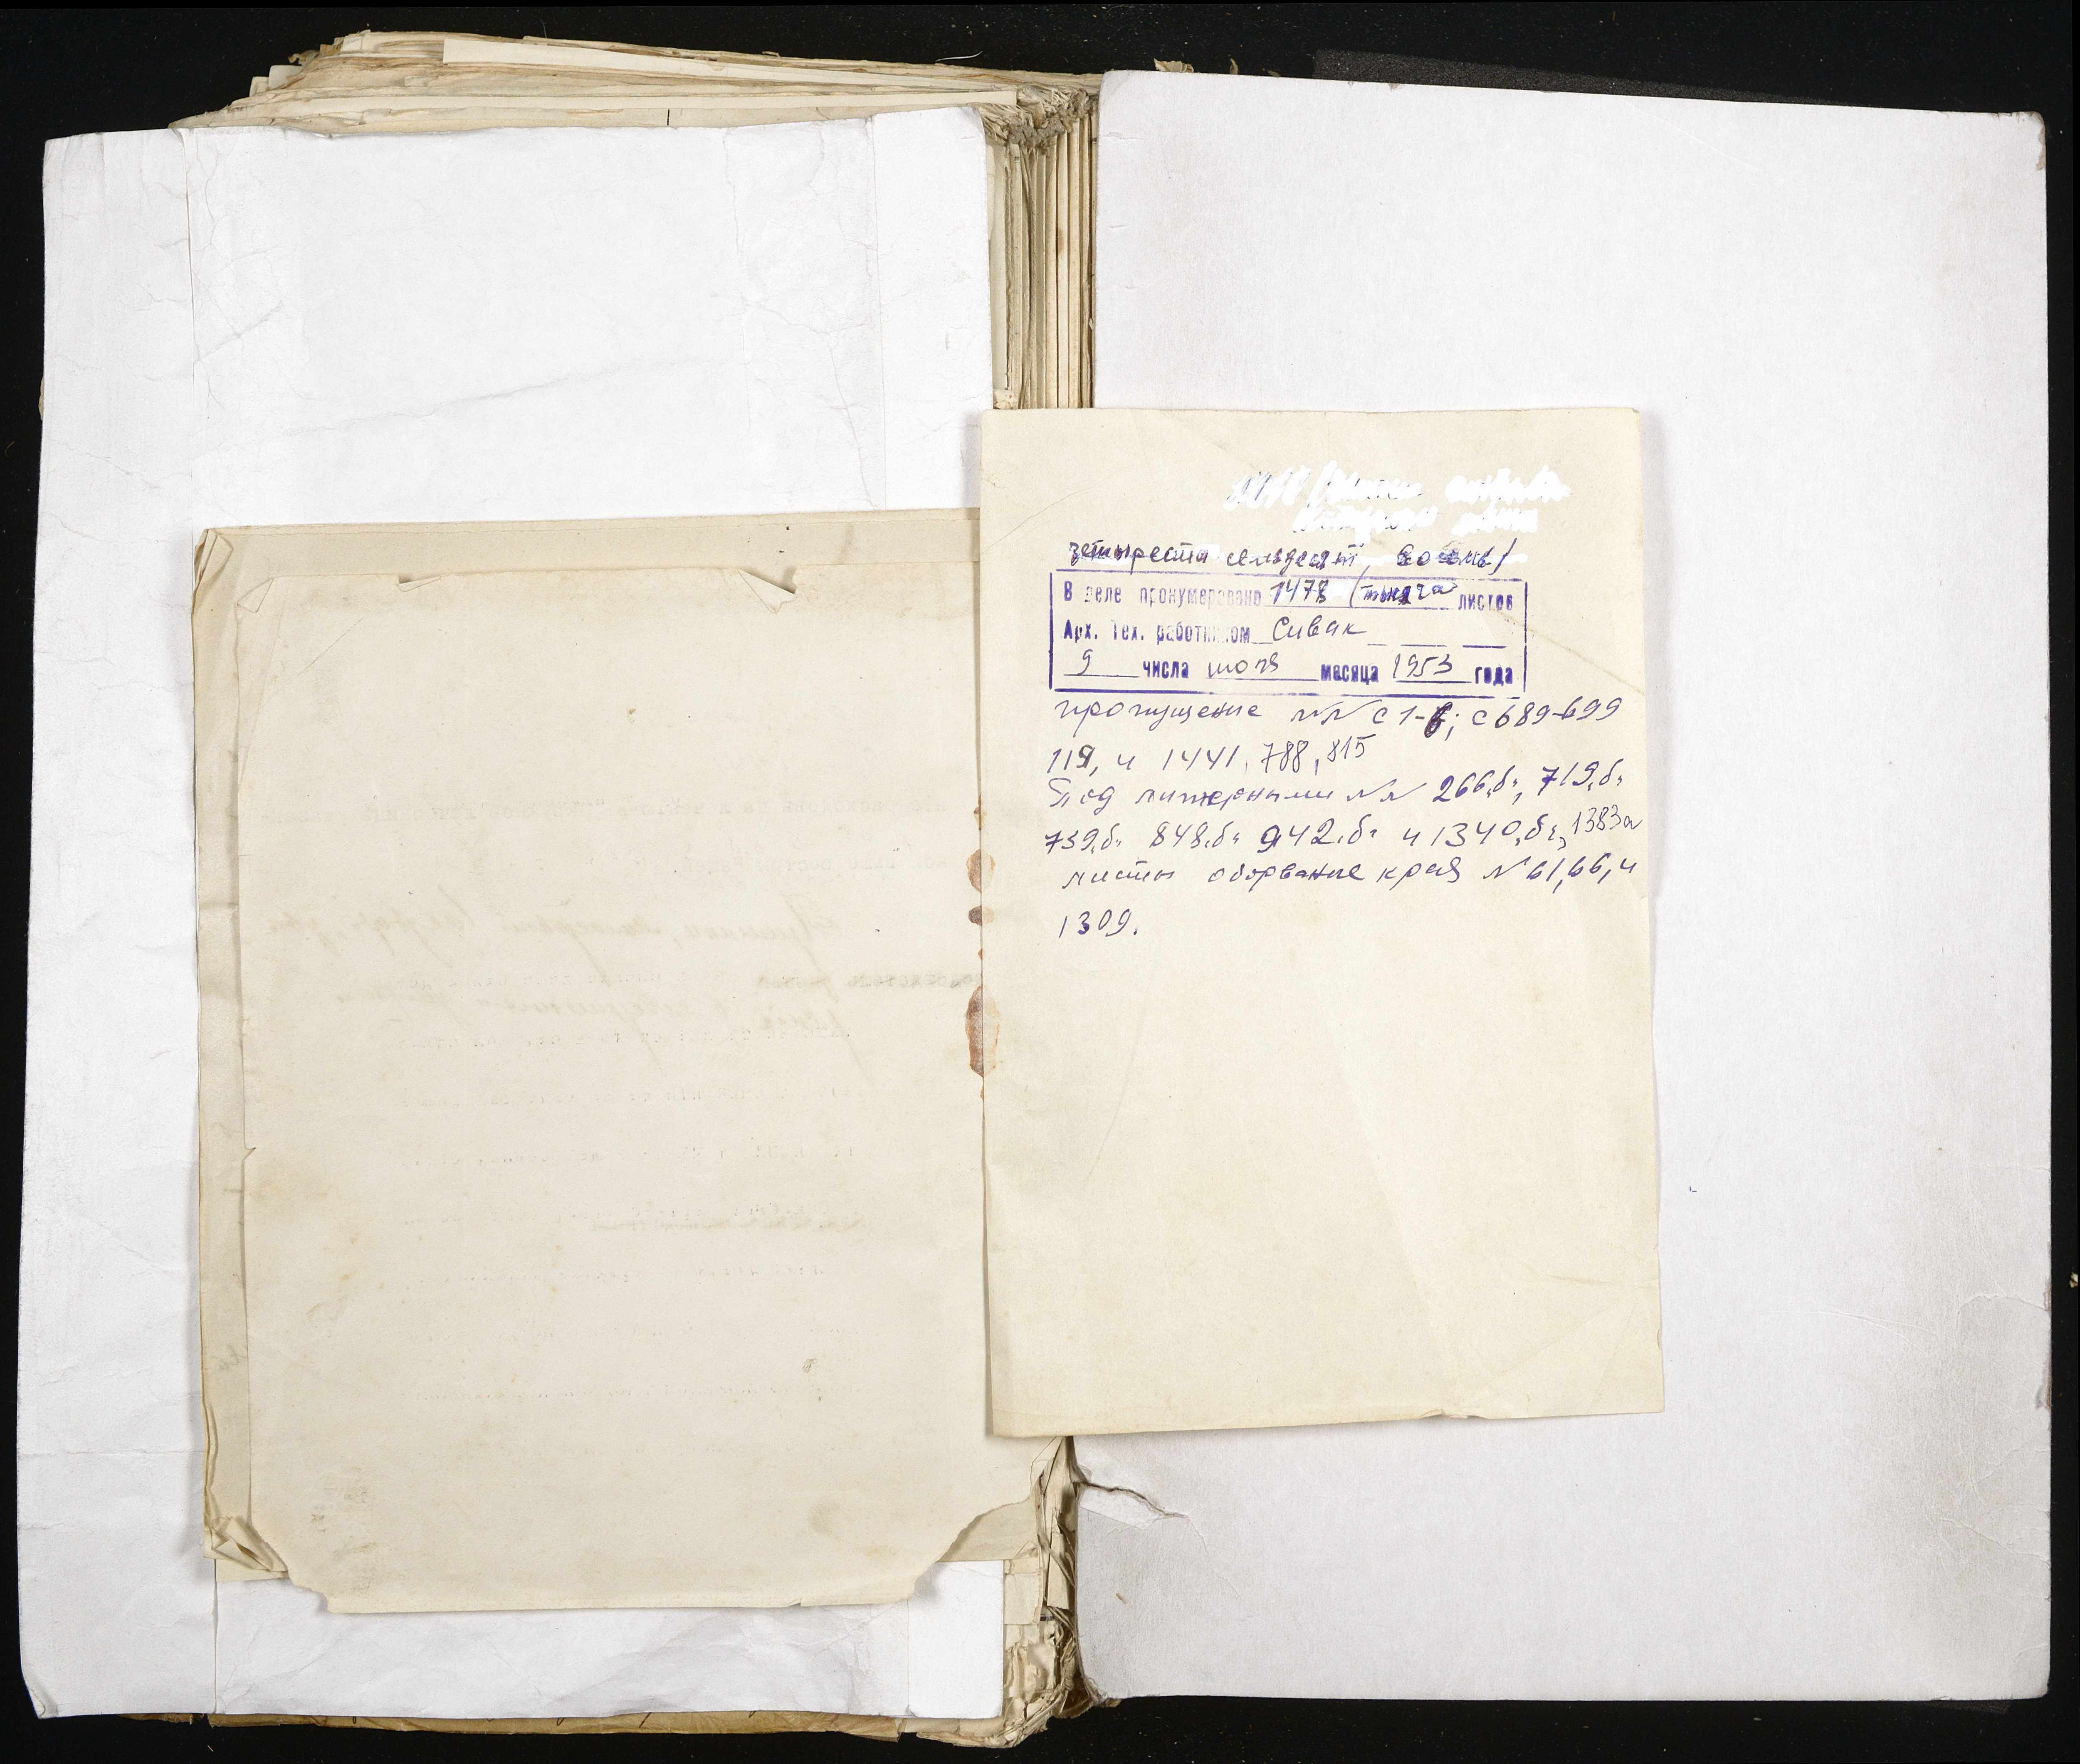 четыреста семьдесят, восемь/
В деле пронумеровано 1478 (тысяча листов
Арх. Тех. работником Сивак
9 числа июля месяца 1953 года
пропущение №№ с 1-6; с 689-699
119, и 1441, 788, 815
Под литерными №№ 266„б", 719„б"
739„б" 848„б" 942„б" и 1340„б", 1383а
листы оборваные края № 61, 66, и
1309.